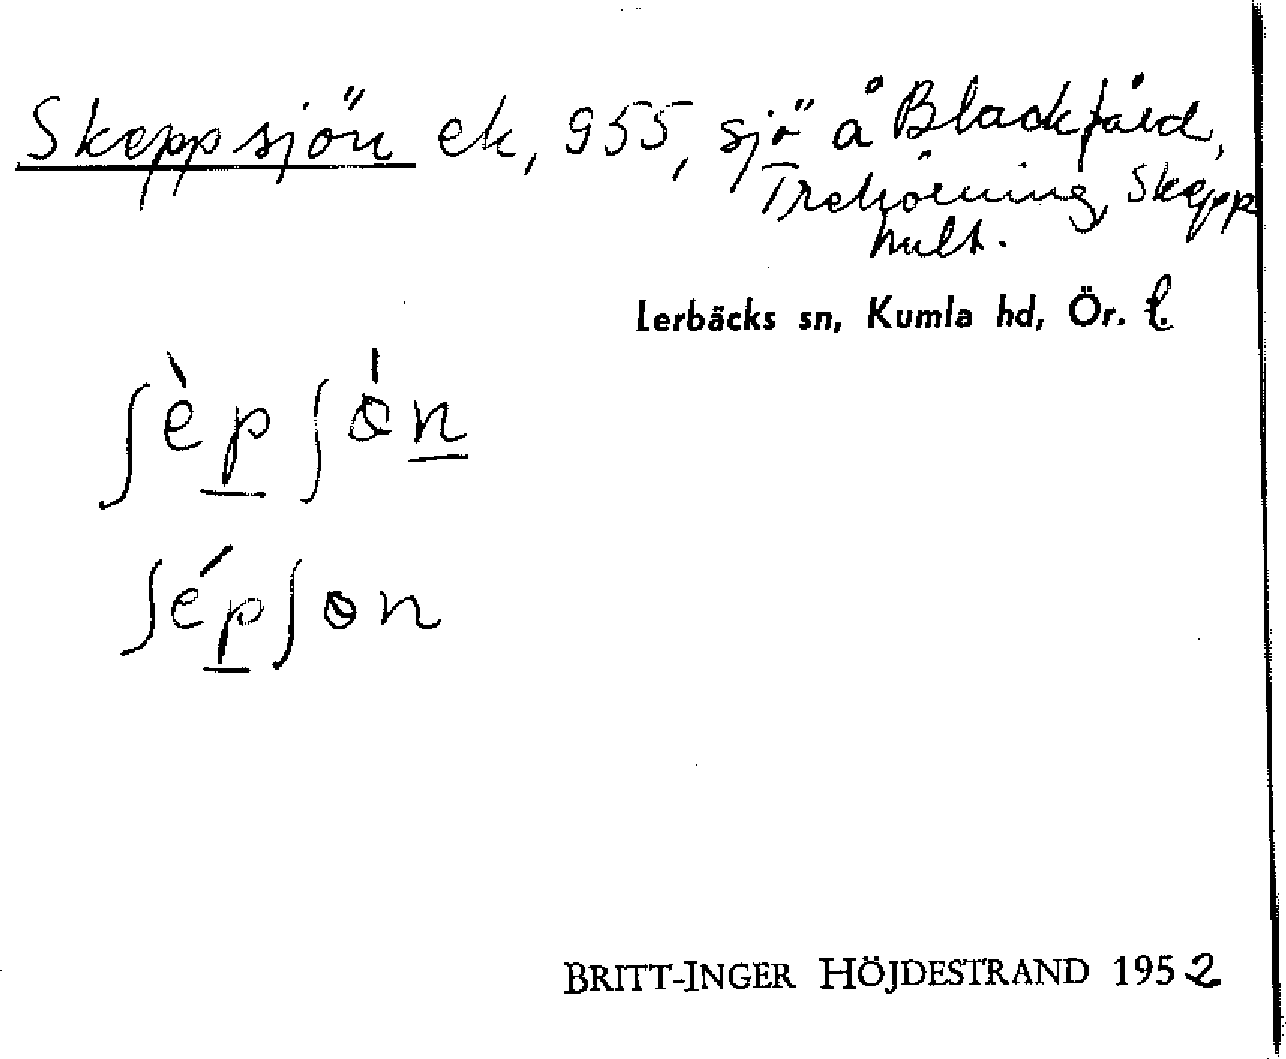 Skeppsjön ek, 955, sjö å Blackfåld,
Trehörning, Skepp
hult.
Lerbäcks sn, Kumla hd, Ör. l.
ʃèp ʃɵ́n
ʃépʃɵn
BRITT-INGER HÖJDESTRAND 1952